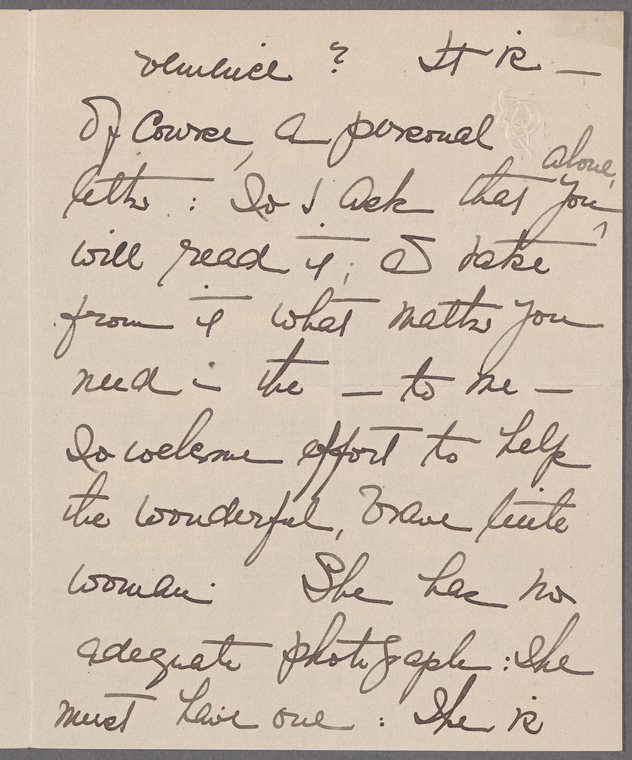 venience ? It is —
Of course, a personal
letter : So I ask that you alone,
will read it; & take
from it what matter you
need in the — to me —
So welcome effort to help
the wonderful, brave little
woman. She has no
adequate photograph : She
must have one : She is